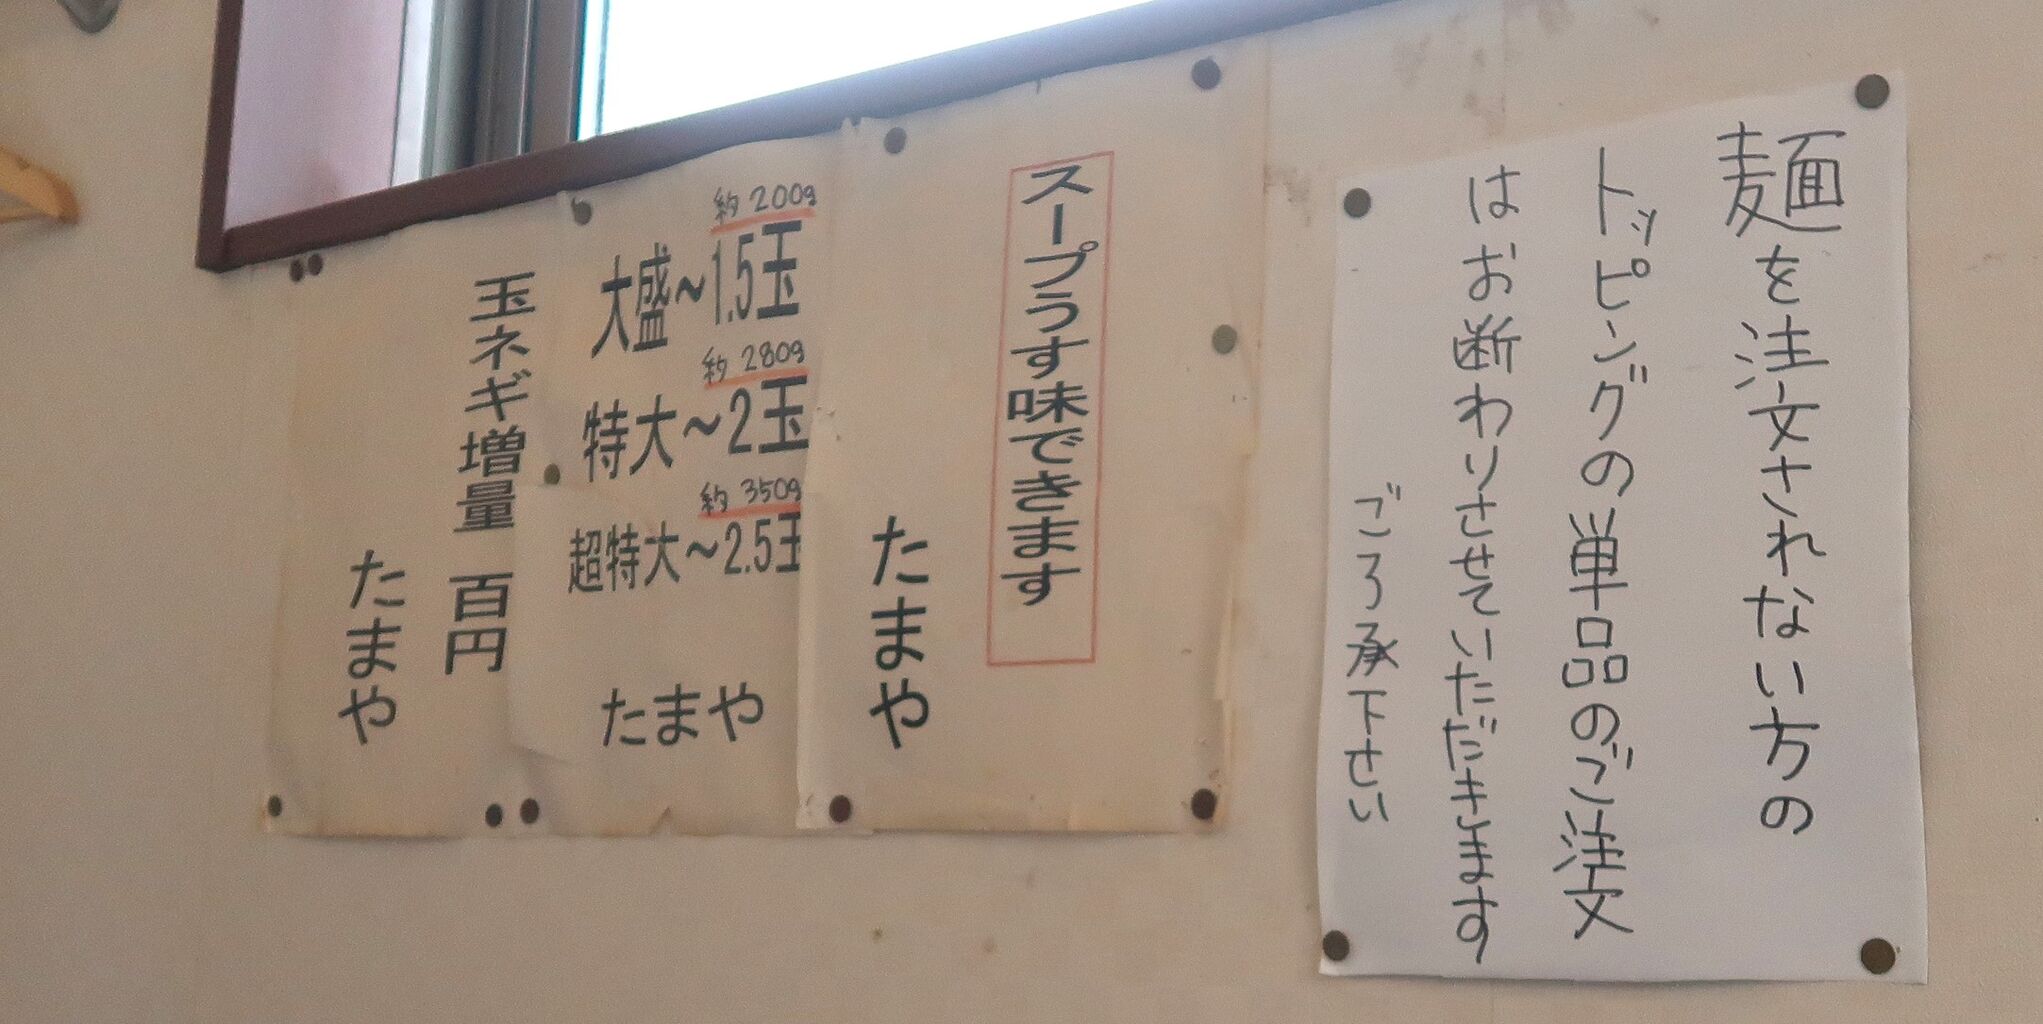 麺を注文されない方の
トッピングの単品のご注文
はお断わりさせていただきます
ごろ承下さい
スープうす味できます
たまや
約200g
大盛~1.5玉
約280g
特大~2玉
約350g
超特大~2.5玉
たまや
玉ネギ増量 百円
たまや